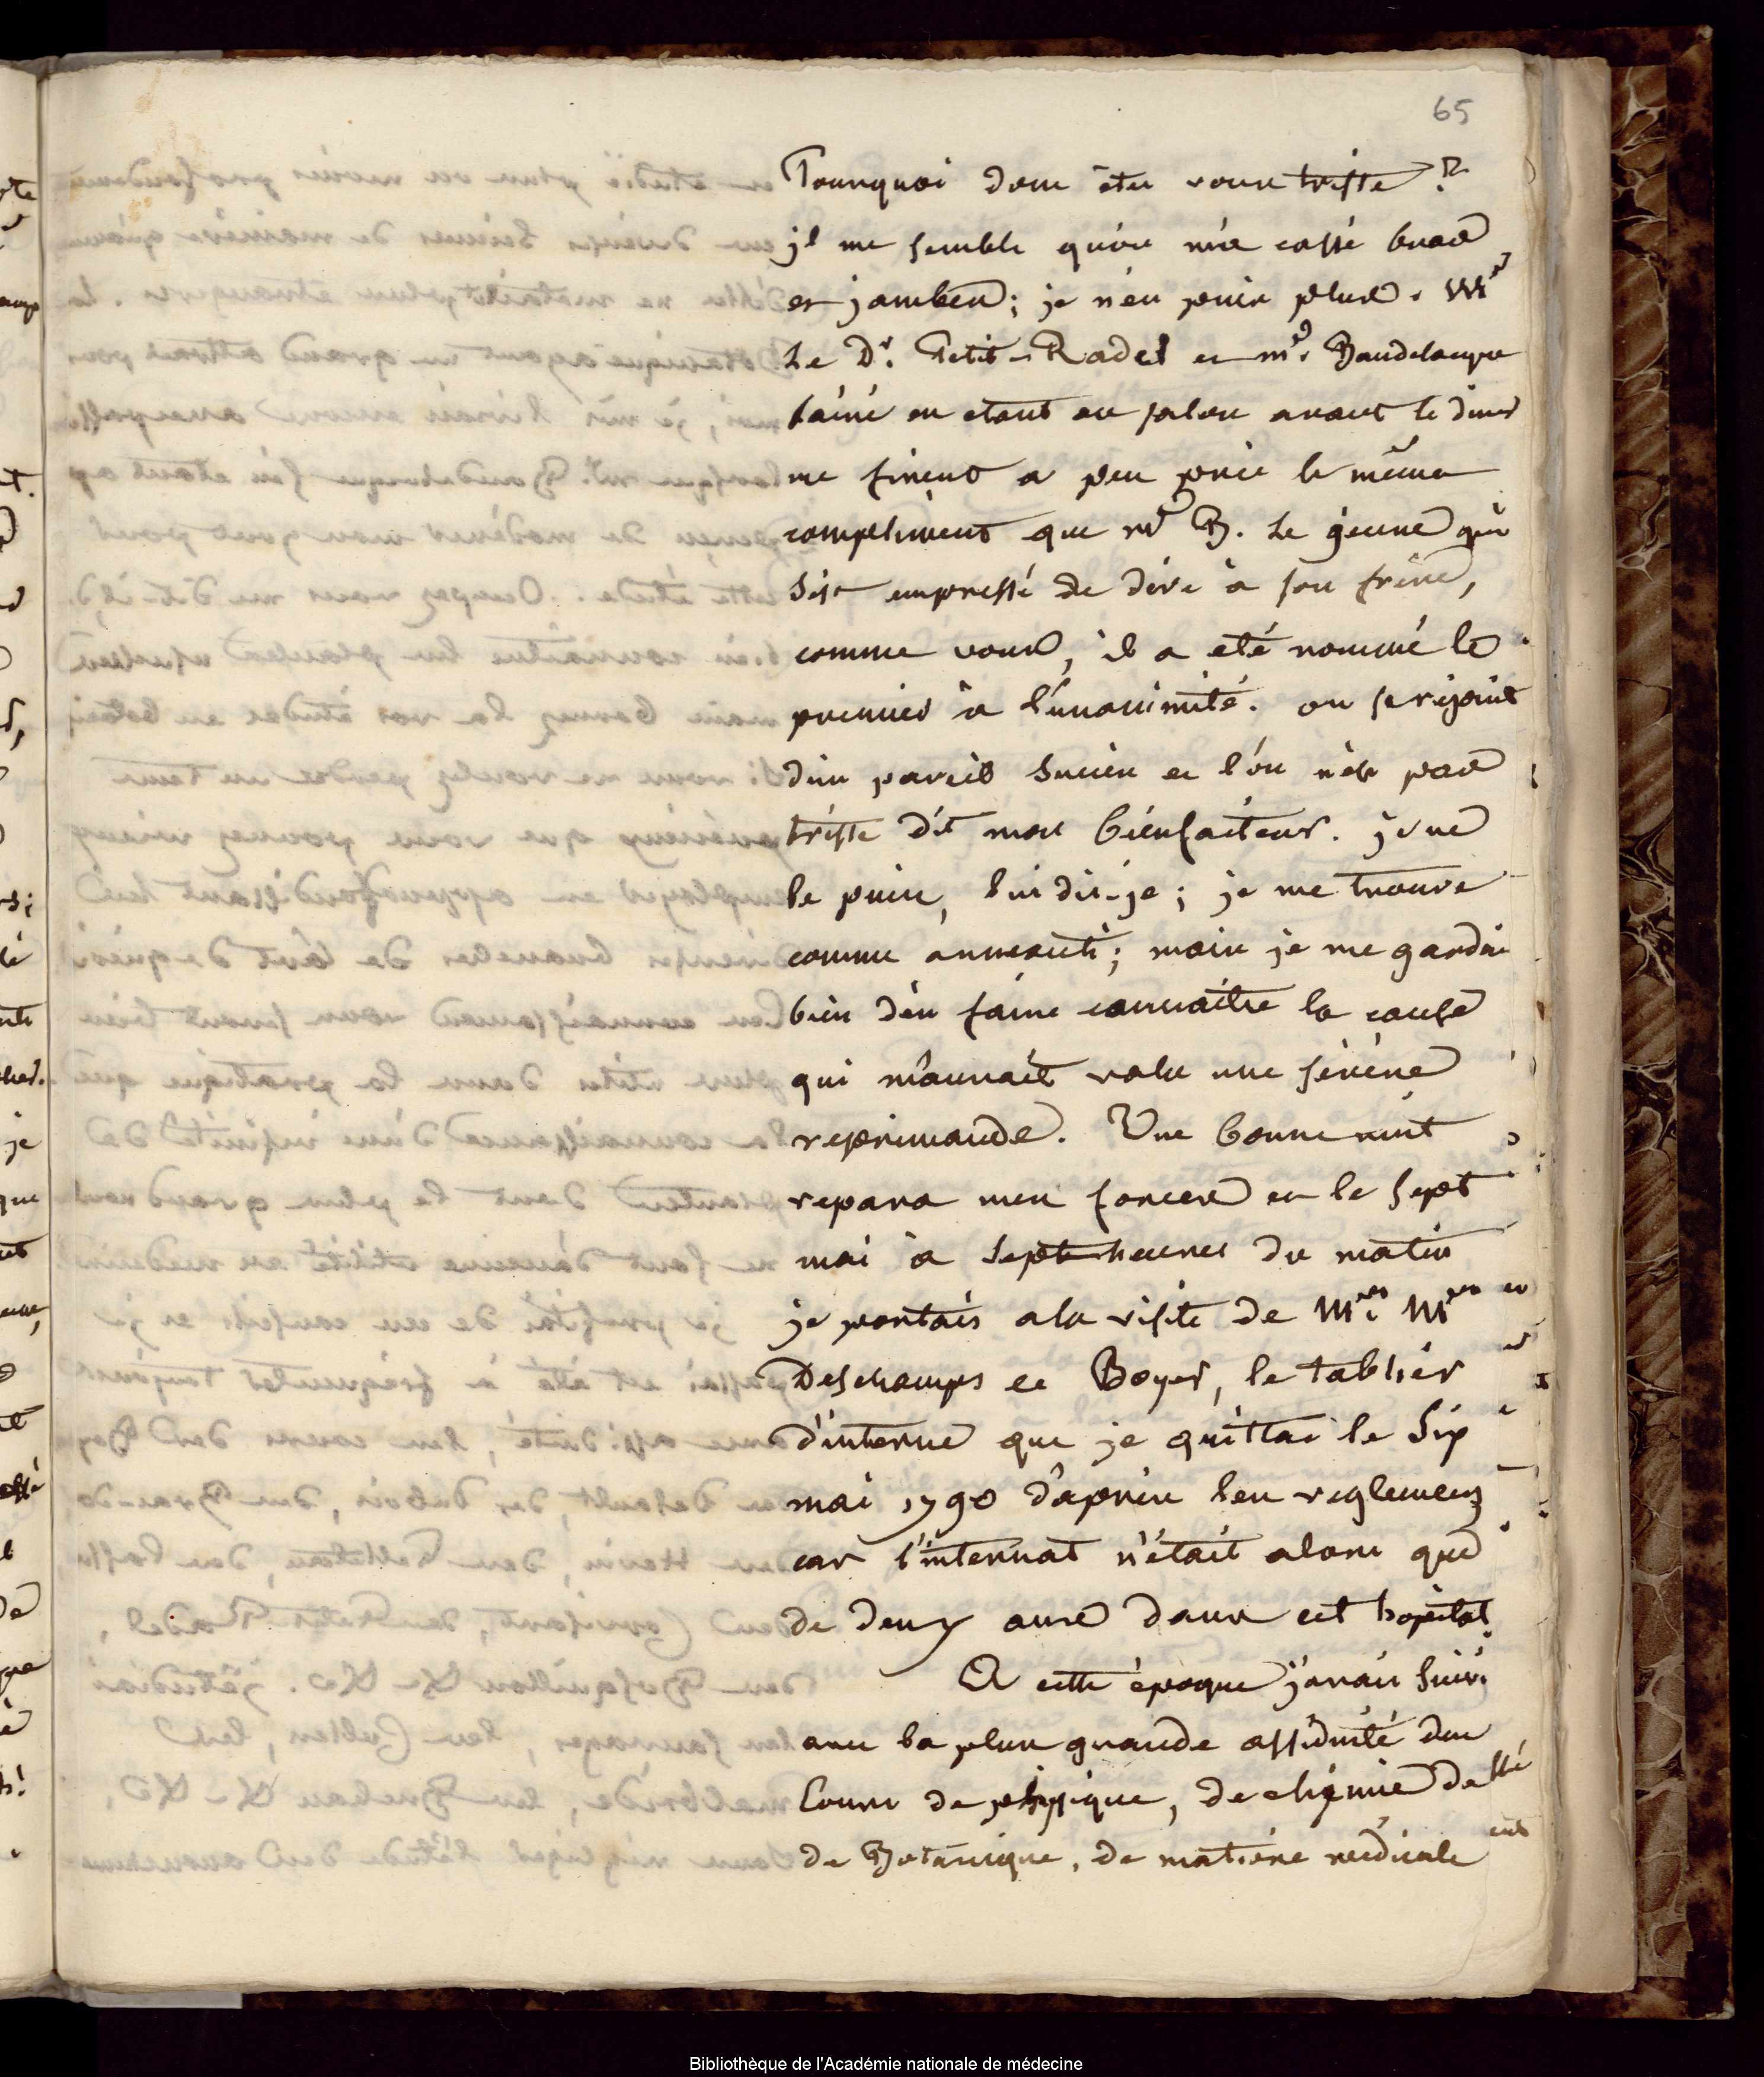 65
Pourquoi donc êtes vous triste ?
jl me semble qu'on m'a cassé bras
et jambes ; je n'en puis plus. Mrs
Le Dr. Petit-Radel et mr. Baudelocque
l'ainé en etant au salon avant le diner
me firent a peu près le même
compliment que mr B. le jeune qui
s'est empressé de dire à son frère,
comme vous, il a eté nommé le
premier à l'unanimité. on se rejouit
d'un pareil succès et l'on n'est pas
triste dit mon bienfaiteur. je ne
le puis, lui dis-je ; je me trouve
comme anneanti ; mais je me gardai
bien d'en faire connaître la cause
qui m'aurait valu une sévère
reprimande. Une bonne nuit
repara mes forces et le sept
mai à sept heures du matin
je portais a la visite de Mrs
Deschamps et Boyer, le tablier
d'interne que je quittai le six
mai 1790 d'après les reglemens
car l'internat n'était alors que
de deux ans dans cet hopital.
A cette époque j'avais suivi
avec la plus grande assiduité des
Cours de physique, de chymie
de Botanique, de matière medicale
Bibliothèque de l'Académie nationale de médecine